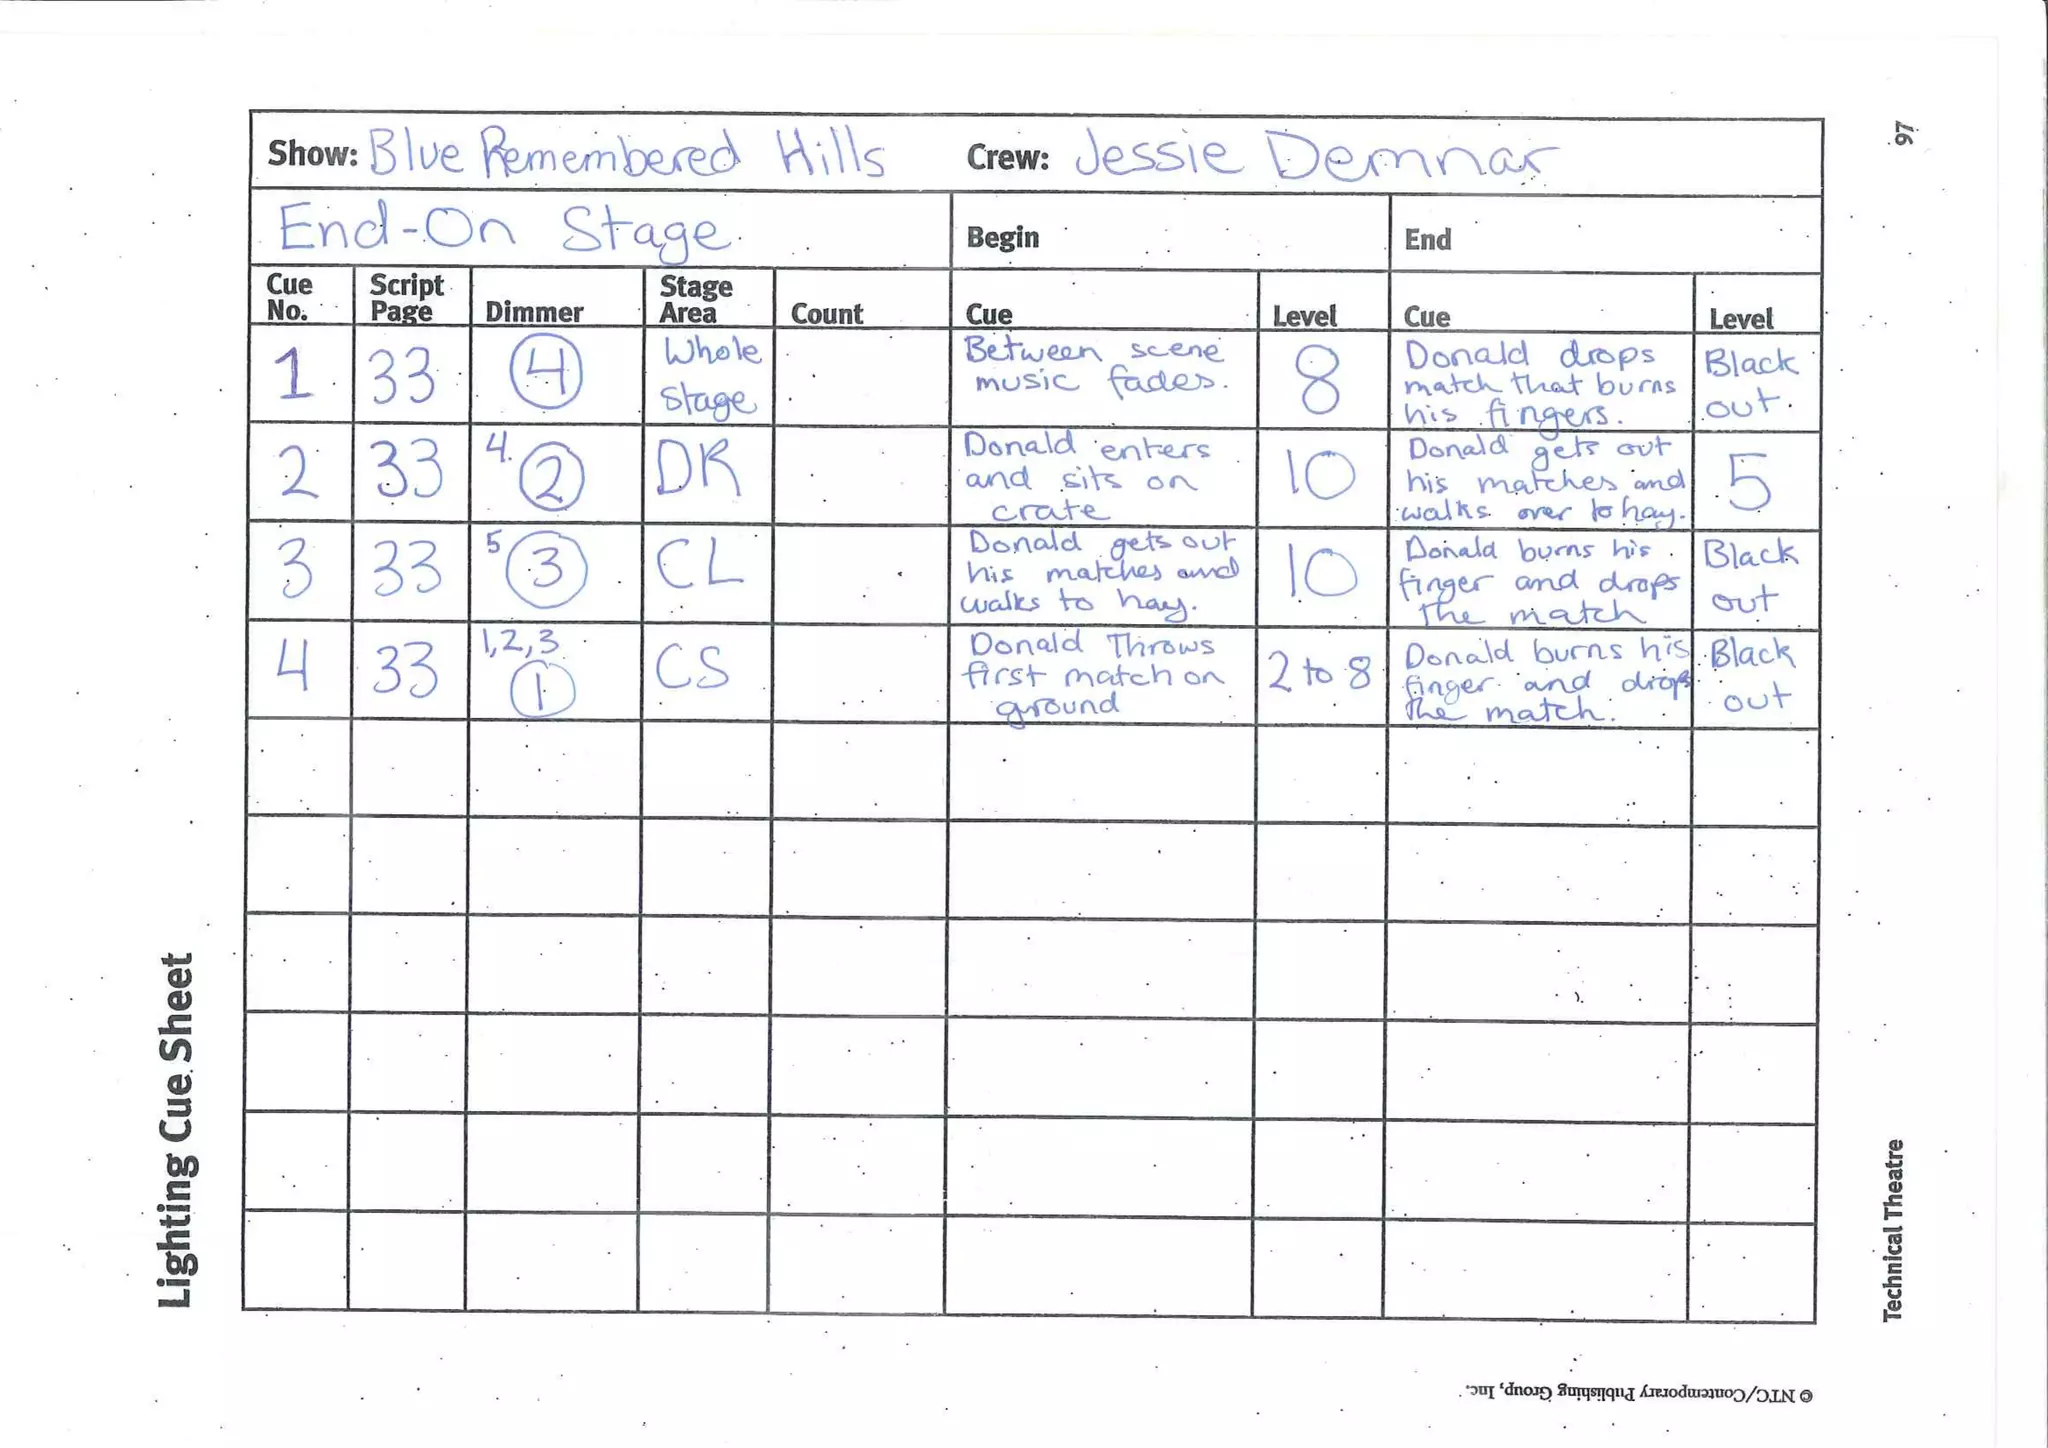 Show: Blue Remembered Hills Crew: Jessie Demnar
End-On Stage. Begin End
Cue No. Script Page Dimmer Stage Area Count Cue Level Cue Level
1 33 4 Whole Stage Between scene music fades. 8 Donald drops match that burns his fingers. Black out.
2 33 4. 2 DR Donald enters and sits on crate 10 Donald gets out his matches and walks over to hay. 5
3 33 5 3 CL Donald gets out his matches and walks to hay. 10 Donald burns his finger and drops the match Black out
4 33 1,2,3 1 CS Donald Throws first match on ground 2 to 8 Donald burns his finger and drops the match. Black out
Lighting Cue Sheet
97
Technical Theatre
© NTC/Contemporary Publishing Group, Inc.